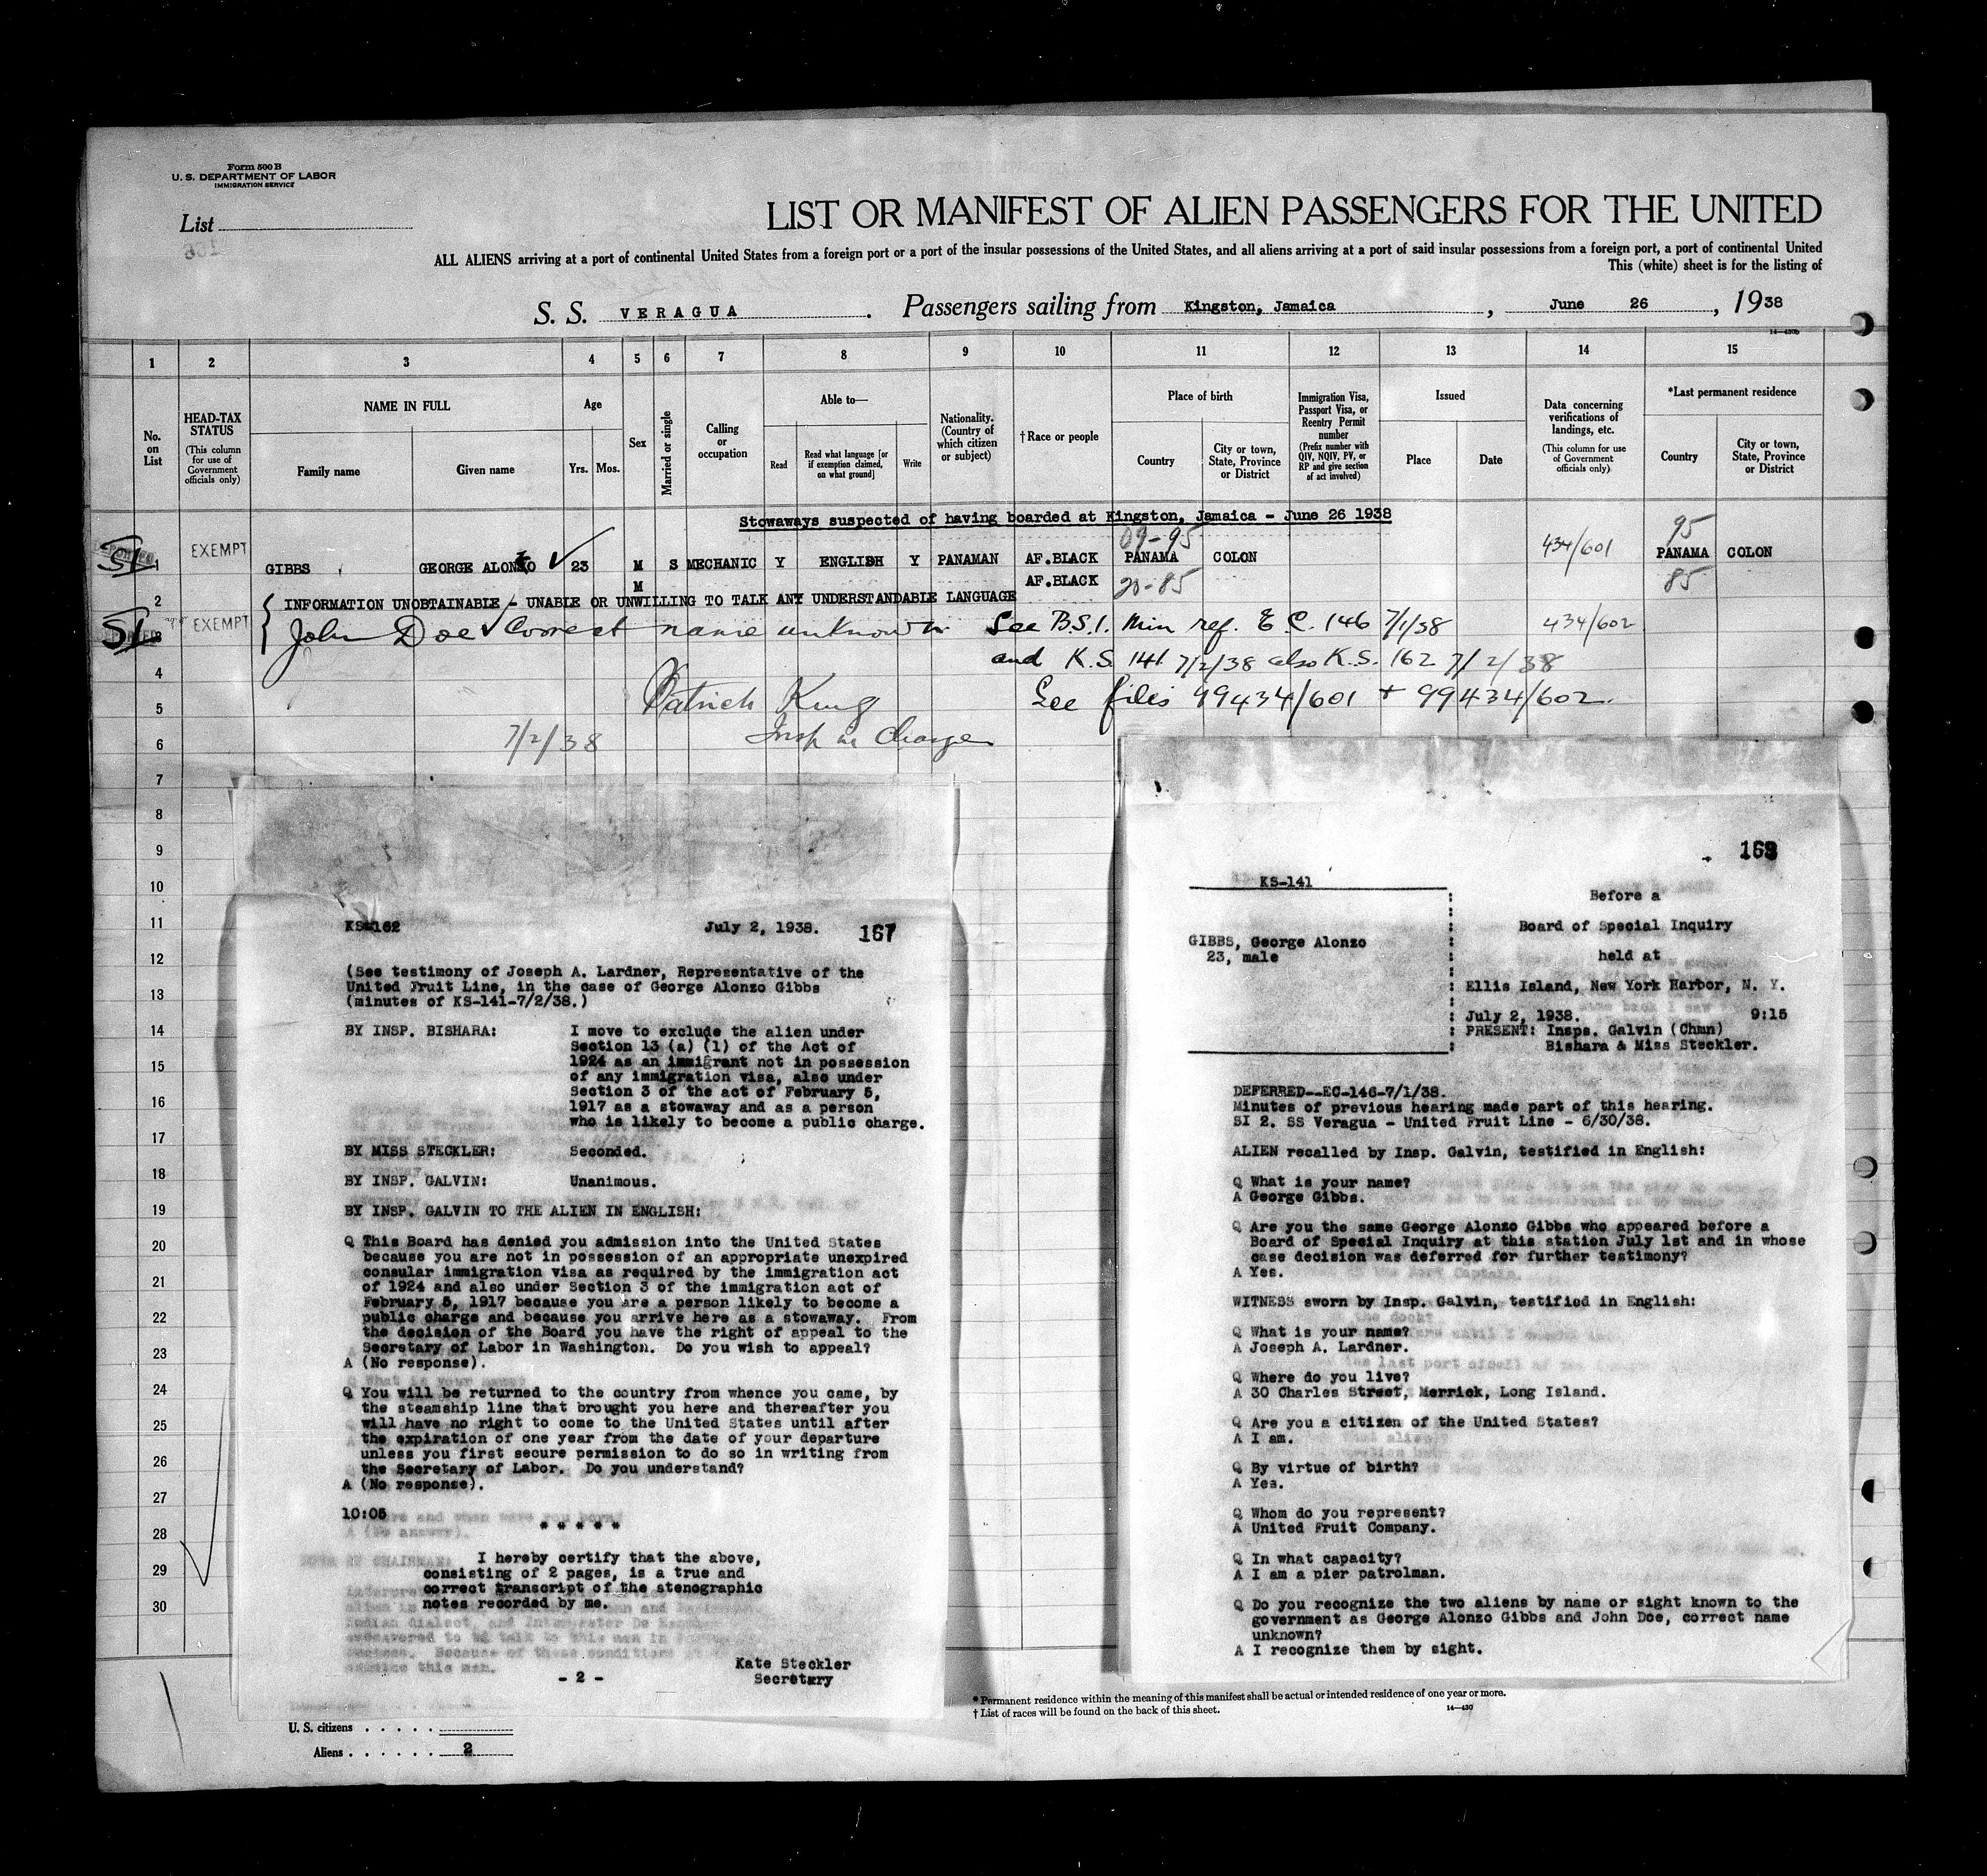 Form 500 B
U. S. DEPARTMENT OF LABOR
IMMIGRATION SERVICE
List
LIST OR MANIFEST OF ALIEN PASSENGERS FOR THE UNITED
ALL ALIENS arriving at a port of continental United States from a foreign port or a port of the insular possessions of the United States, and all aliens arriving at a port of said insular possessions from a foreign port, a port of continental United
This (white) sheet is for the listing of
S. S. VERAGUA. Passengers sailing from Kingston, Jamaica, June 26, 1938
1 2 3 4 5 6 7 8 9 10 11 12 13 14 15
No. on List
HEAD-TAX STATUS
(This column for use of Government officials only)
NAME IN FULL
Family name
Given name
Age
Yrs. Mos.
Sex
Married or single
Calling or occupation
Able to—
Read
Read what language [or if exemption claimed, on what ground]
Write
Nationality. (Country of which citizen or subject)
†Race or people
Place of birth
Country
City or town, State, Province or District
Immigration Visa, Passport Visa, or Reentry Permit number
(Prefix number with QIV, NQIV, PV, or RP and give section of act involved)
Issued
Place
Date
Data concerning verifications of landings, etc.
(This column for use of Government officials only)
*Last permanent residence
Country
City or town, State, Province or District
Stowaways suspected of having boarded at Kingston, Jamaica - June 26 1938
09-95 95
SI 1 EXEMPT GIBBS GEORGE ALONZO 23 M S MECHANIC Y ENGLISH Y PANAMAN AF.BLACK PANAMA COLON 434/601 PANAMA COLON
M AF.BLACK 20-85 85
2 INFORMATION UNOBTAINABLE - UNABLE OR UNWILLING TO TALK ANY UNDERSTANDABLE LANGUAGE
SI 3 EXEMPT John Doe Correct name unknown See B.S.I. Min ref. E C. 146 7/1/38 434/602
4 and K.S. 141 7/2/38 also K.S. 162 7/2/38
5 Patrick King See files 99434/601 + 99434/602.
6 7/2/38 Insp in Charge
7
8
9
10
11
12
13
14
15
16
17
18
19
20
21
22
23
24
25
26
27
28
29
30
KS-162 July 2, 1938. 167
(See testimony of Joseph A. Lardner, Representative of the
United Fruit Line, in the case of George Alonzo Gibbs
(minutes of KS-141-7/2/38.)
BY INSP. BISHARA: I move to exclude the alien under
Section 13 (a) (1) of the Act of
1924 as an immigrant not in possession
of any immigration visa, also under
Section 3 of the act of February 5,
1917 as a stowaway and as a person
who is likely to become a public charge.
BY MISS STECKLER: Seconded.
BY INSP. GALVIN: Unanimous.
BY INSP. GALVIN TO THE ALIEN IN ENGLISH:
Q This Board has denied you admission into the United States
because you are not in possession of an appropriate unexpired
consular immigration visa as required by the immigration act
of 1924 and also under Section 3 of the immigration act of
February 5, 1917 because you are a person likely to become a
public charge and because you arrive here as a stowaway. From
the decision of the Board you have the right of appeal to the
Secretary of Labor in Washington. Do you wish to appeal?
A (No response).
Q You will be returned to the country from whence you came, by
the steamship line that brought you here and thereafter you
will have no right to come to the United States until after
the expiration of one year from the date of your departure
unless you first secure permission to do so in writing from
the Secretary of Labor. Do you understand?
A (No response).
10:05
* * * * *
I hereby certify that the above,
consisting of 2 pages, is a true and
correct transcript of the stenographic
notes recorded by me.
Kate Steckler
Secretary
- 2 -
163
KS-141
GIBBS, George Alonzo
23, male
Before a
Board of Special Inquiry
held at
Ellis Island, New York Harbor, N. Y.
July 2, 1938. 9:15
PRESENT: Insps. Galvin (Chmn)
Bishara & Miss Steckler.
DEFERRED--EC-146-7/1/38.
Minutes of previous hearing made part of this hearing.
SI 2. SS Veragua - United Fruit Line - 6/30/38.
ALIEN recalled by Insp. Galvin, testified in English:
Q What is your name?
A George Gibbs.
Q Are you the same George Alonzo Gibbs who appeared before a
Board of Special Inquiry at this station July 1st and in whose
case decision was deferred for further testimony?
A Yes.
WITNESS sworn by Insp. Galvin, testified in English:
Q What is your name?
A Joseph A. Lardner.
Q Where do you live?
A 30 Charles Street, Merrick, Long Island.
Q Are you a citizen of the United States?
A I am.
Q By virtue of birth?
A Yes.
Q Whom do you represent?
A United Fruit Company.
Q In what capacity?
A I am a pier patrolman.
Q Do you recognize the two aliens by name or sight known to the
government as George Alonzo Gibbs and John Doe, correct name
unknown?
A I recognize them by sight.
* Permanent residence within the meaning of this manifest shall be actual or intended residence of one year or more.
† List of races will be found on the back of this sheet.
14—430
U. S. citizens
Aliens 2